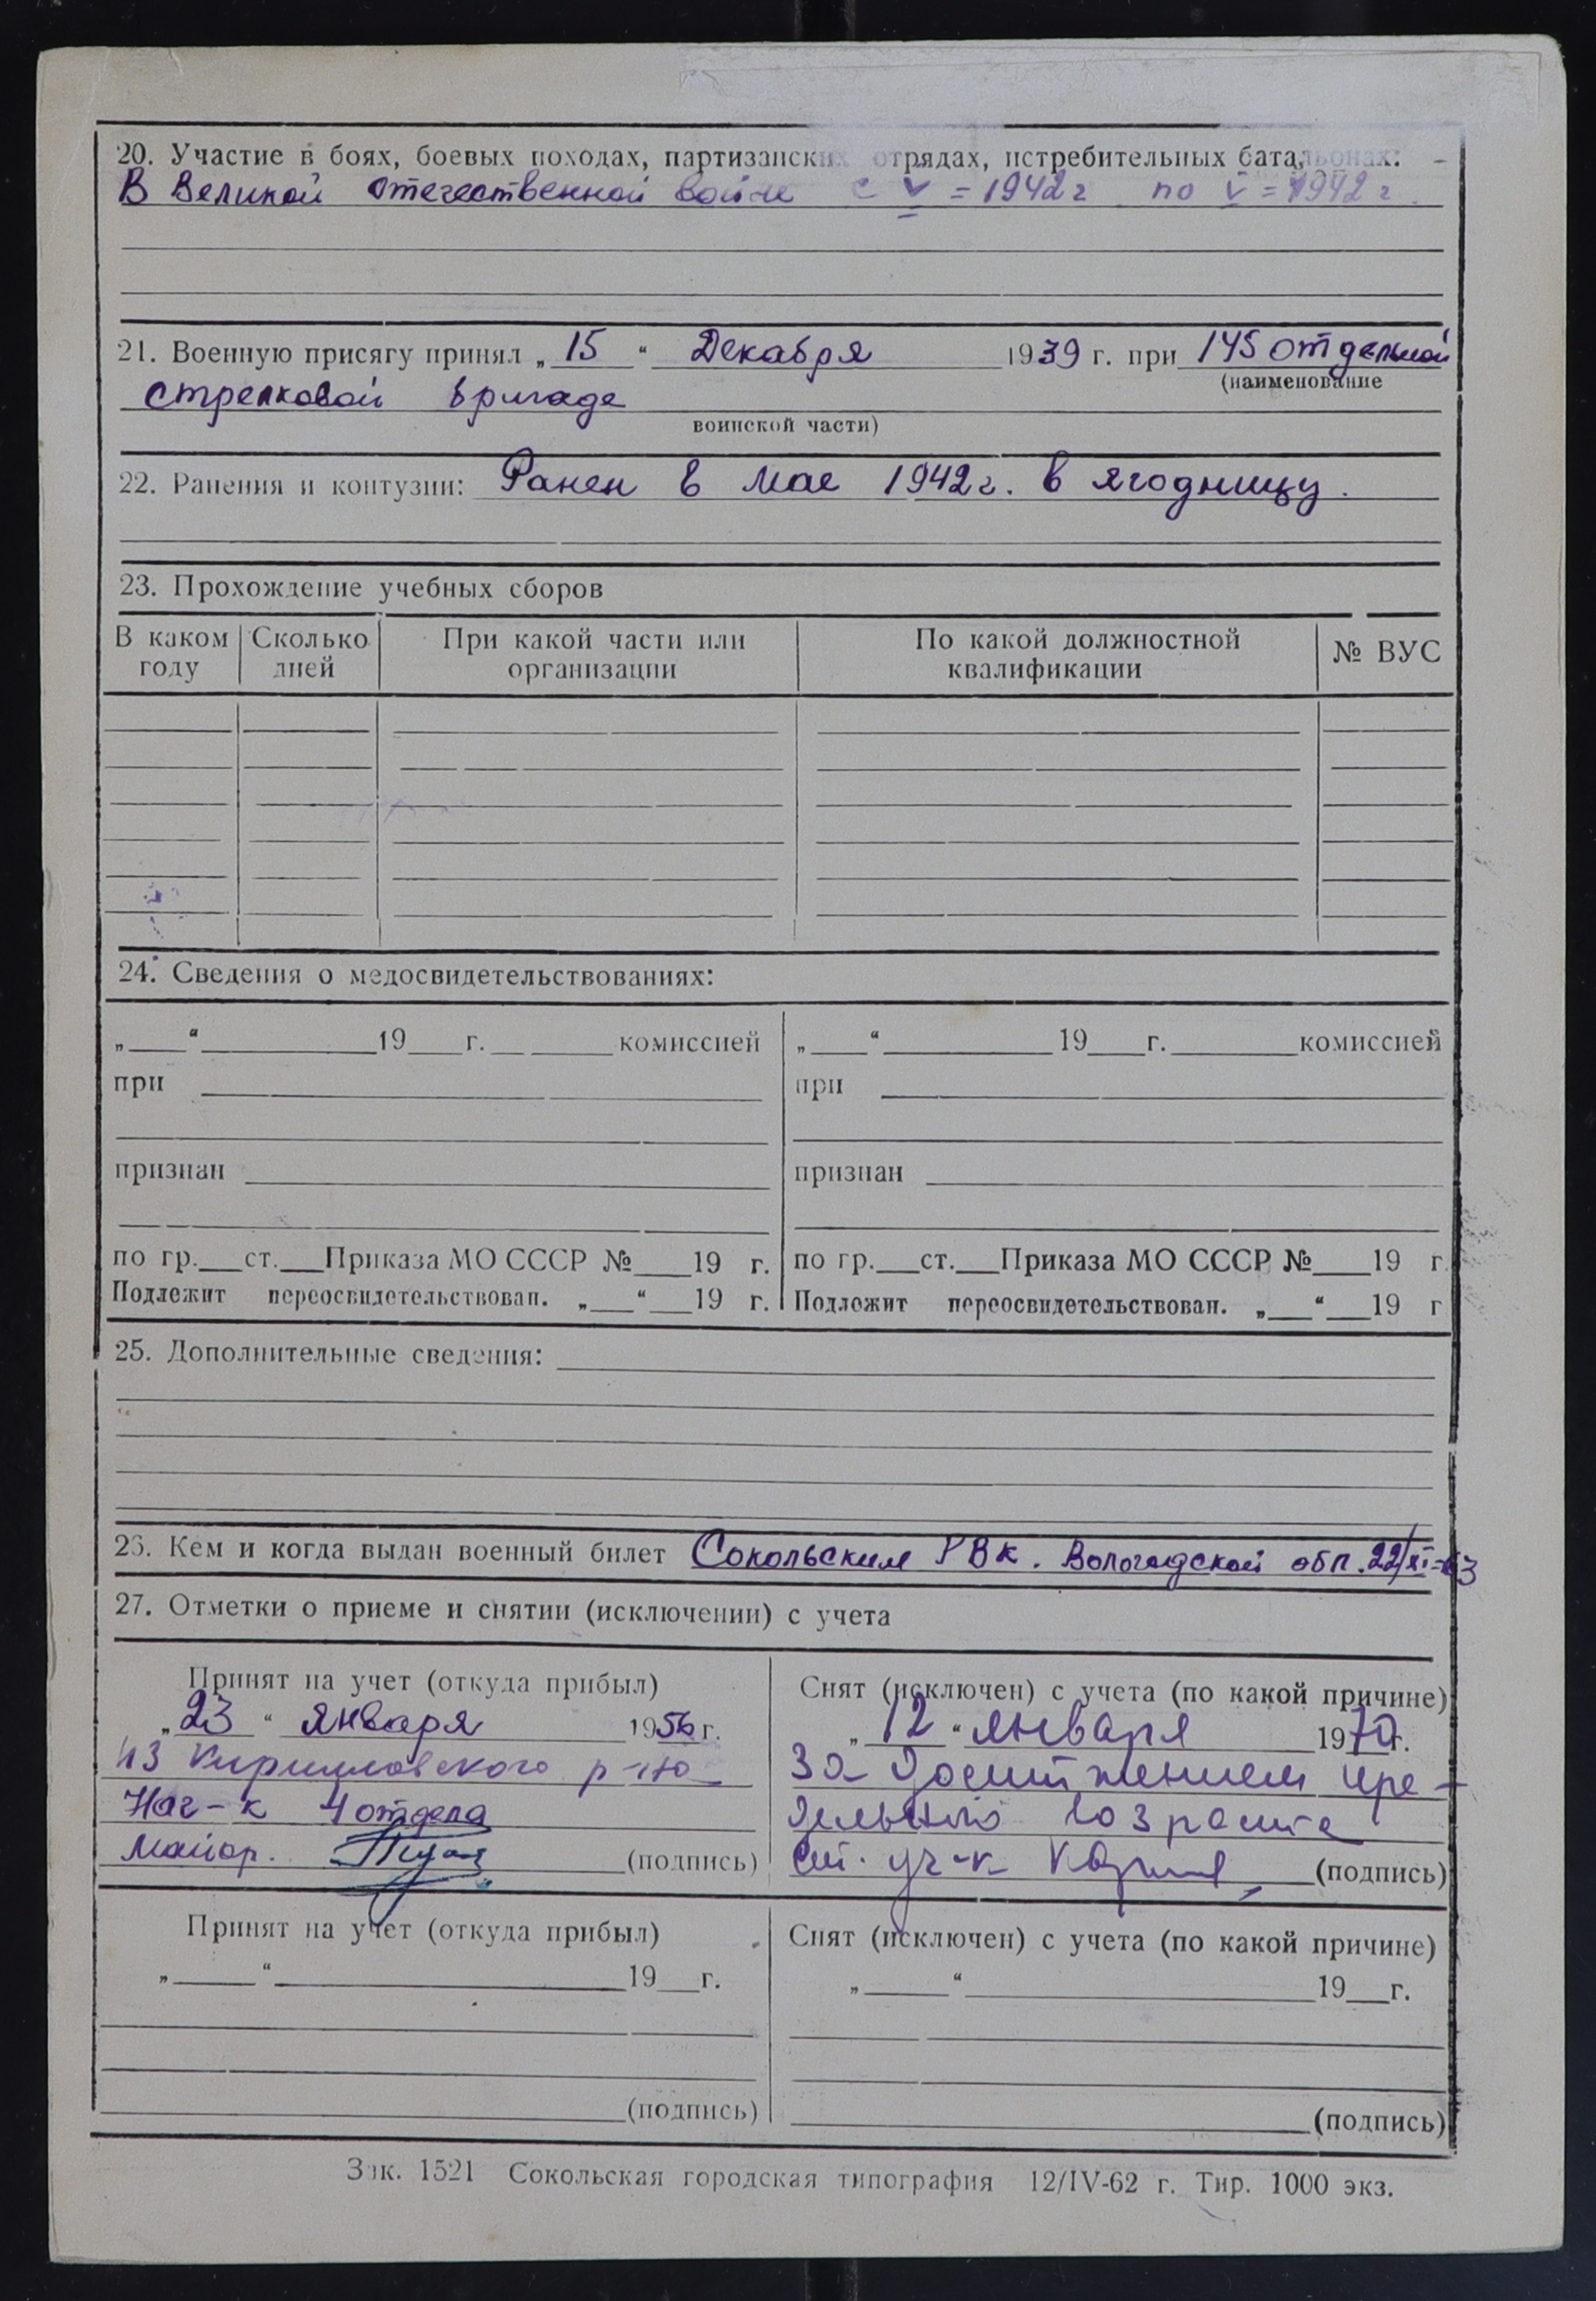 20. Участие в боях, боевых походах, партизанских отрядах, истребительных батальонах:
В Великой Отечественной войне с V = 1942 г по V = 1942 г.
21. Военную присягу принял „15“ Декабря 1939 г. при 145 отдельной
(наименование
стрелковой бригаде
воинской части)
22. Ранения и контузии: Ранен в мае 1942 г. в ягодницу.
23. Прохождение учебных сборов
В каком году | Сколько дней | При какой части или организации | По какой должностной квалификации | № ВУС
24. Сведения о медосвидетельствованиях:
„___“ ______ 19__ г. ______ комиссией
при
признан
по гр.___ст.___Приказа МО СССР №___19 г.
Подлежит переосвидетельствован. „___“___19 г.
„___“ ______ 19__ г. ______ комиссией
при
признан
по гр.___ст.___Приказа МО СССР №___19 г
Подлежит переосвидетельствован. „___“___19 г
25. Дополнительные сведения:
26. Кем и когда выдан военный билет Сокольским РВК. Вологодской обл. 22/XI-63
27. Отметки о приеме и снятии (исключении) с учета
Принят на учет (откуда прибыл)
„23“ января 1956 г.
из Кирилловского р-на
Нач-к 4 отдела
майор. (подпись)
Снят (исключен) с учета (по какой причине)
„12“ января 1970 г.
за достижением пре-
дельного возраста
ст. уч-к (подпись)
Принят на учет (откуда прибыл)
„___“ ______ 19__ г.
(подпись)
Снят (исключен) с учета (по какой причине)
„___“ ______ 19__ г.
(подпись)
Зак. 1521 Сокольская городская типография 12/IV-62 г. Тир. 1000 экз.